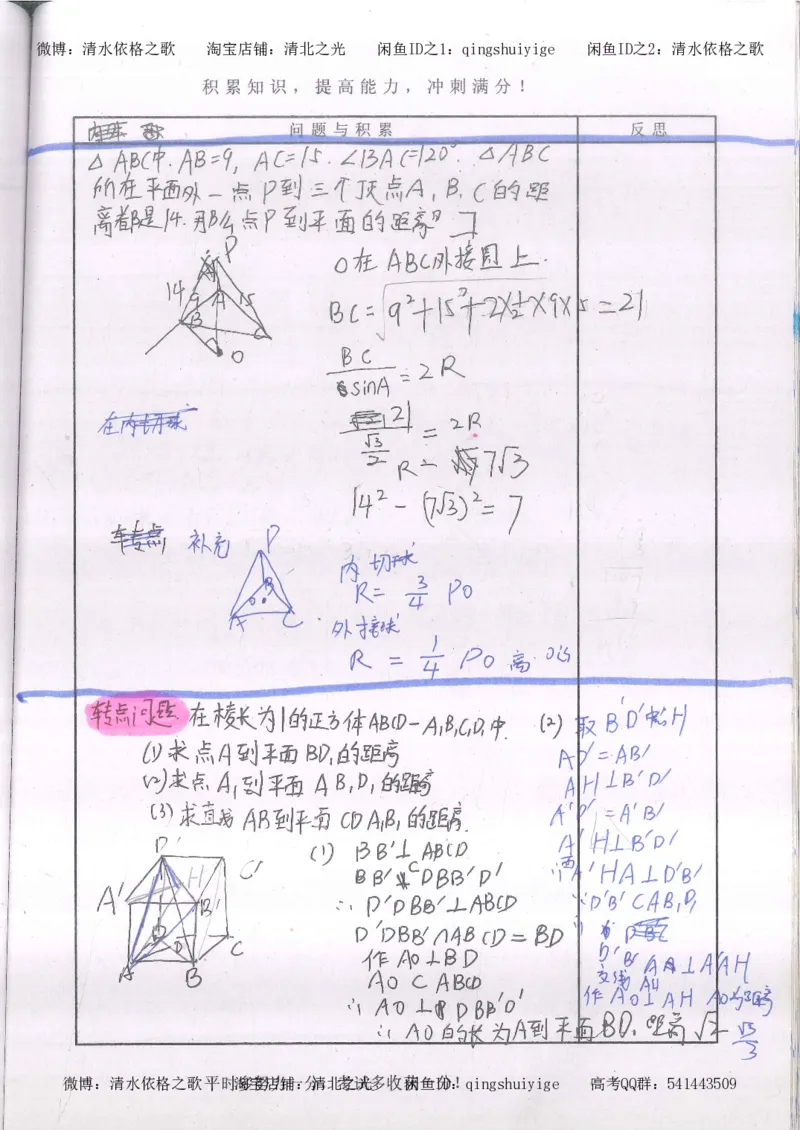 微博：清水依格之歌 淘宝店铺：清北之光 闲鱼ID之1：qingshuiyige 闲鱼ID之2：清水依格之歌
积累知识，提高能力，冲刺满分！
问题与积累 反思
△ABC中.AB=9, AC=15.∠BAC=120°.△ABC
所在平面外一点P到三个顶点A,B,C的距
离都是14.那么点P到平面的距离? 7
O在ABC外接圆上.
P
14 9 A 15
B C
O
BC=√9²+15²+2×½×9×15=21
BC/sinA=2R
21/(√3/2)=2R
R=7√3
14²-(7√3)²=7
在内切球
补充
P
B
O
A C
内切球
R=3/4 PO
外接球
R=1/4 PO 高
转点问题 在棱长为1的正方体ABCD-A₁B₁C₁D₁中.
(1)求点A到平面BD₁的距离
(2)求点A₁到平面AB₁D₁的距离
(3)求直线AB到平面CDA₁B₁的距离.
D' C'
A' H B'
D O C
A B
(1) BB'⊥ABCD
BB'⊂DBB'D'
∴D'DBB'⊥ABCD
D'DBB'∩ABCD=BD
作AO⊥BD
AO⊂ABCD
∴AO⊥DBB'D'
∴AO的长为A到平面BD₁距离
(2) 取B'D'中点H
AD'=AB'
AH⊥B'D'
A'D'=A'B'
A'H⊥B'D'
∴面A'HA⊥D'B'
∵D'B'⊂AB₁D₁
交线AH
作A'O⊥AH AO为距离
√3/3
微博：清水依格之歌 淘宝店铺：清北之光 闲鱼ID：qingshuiyige 高考QQ群：541443509